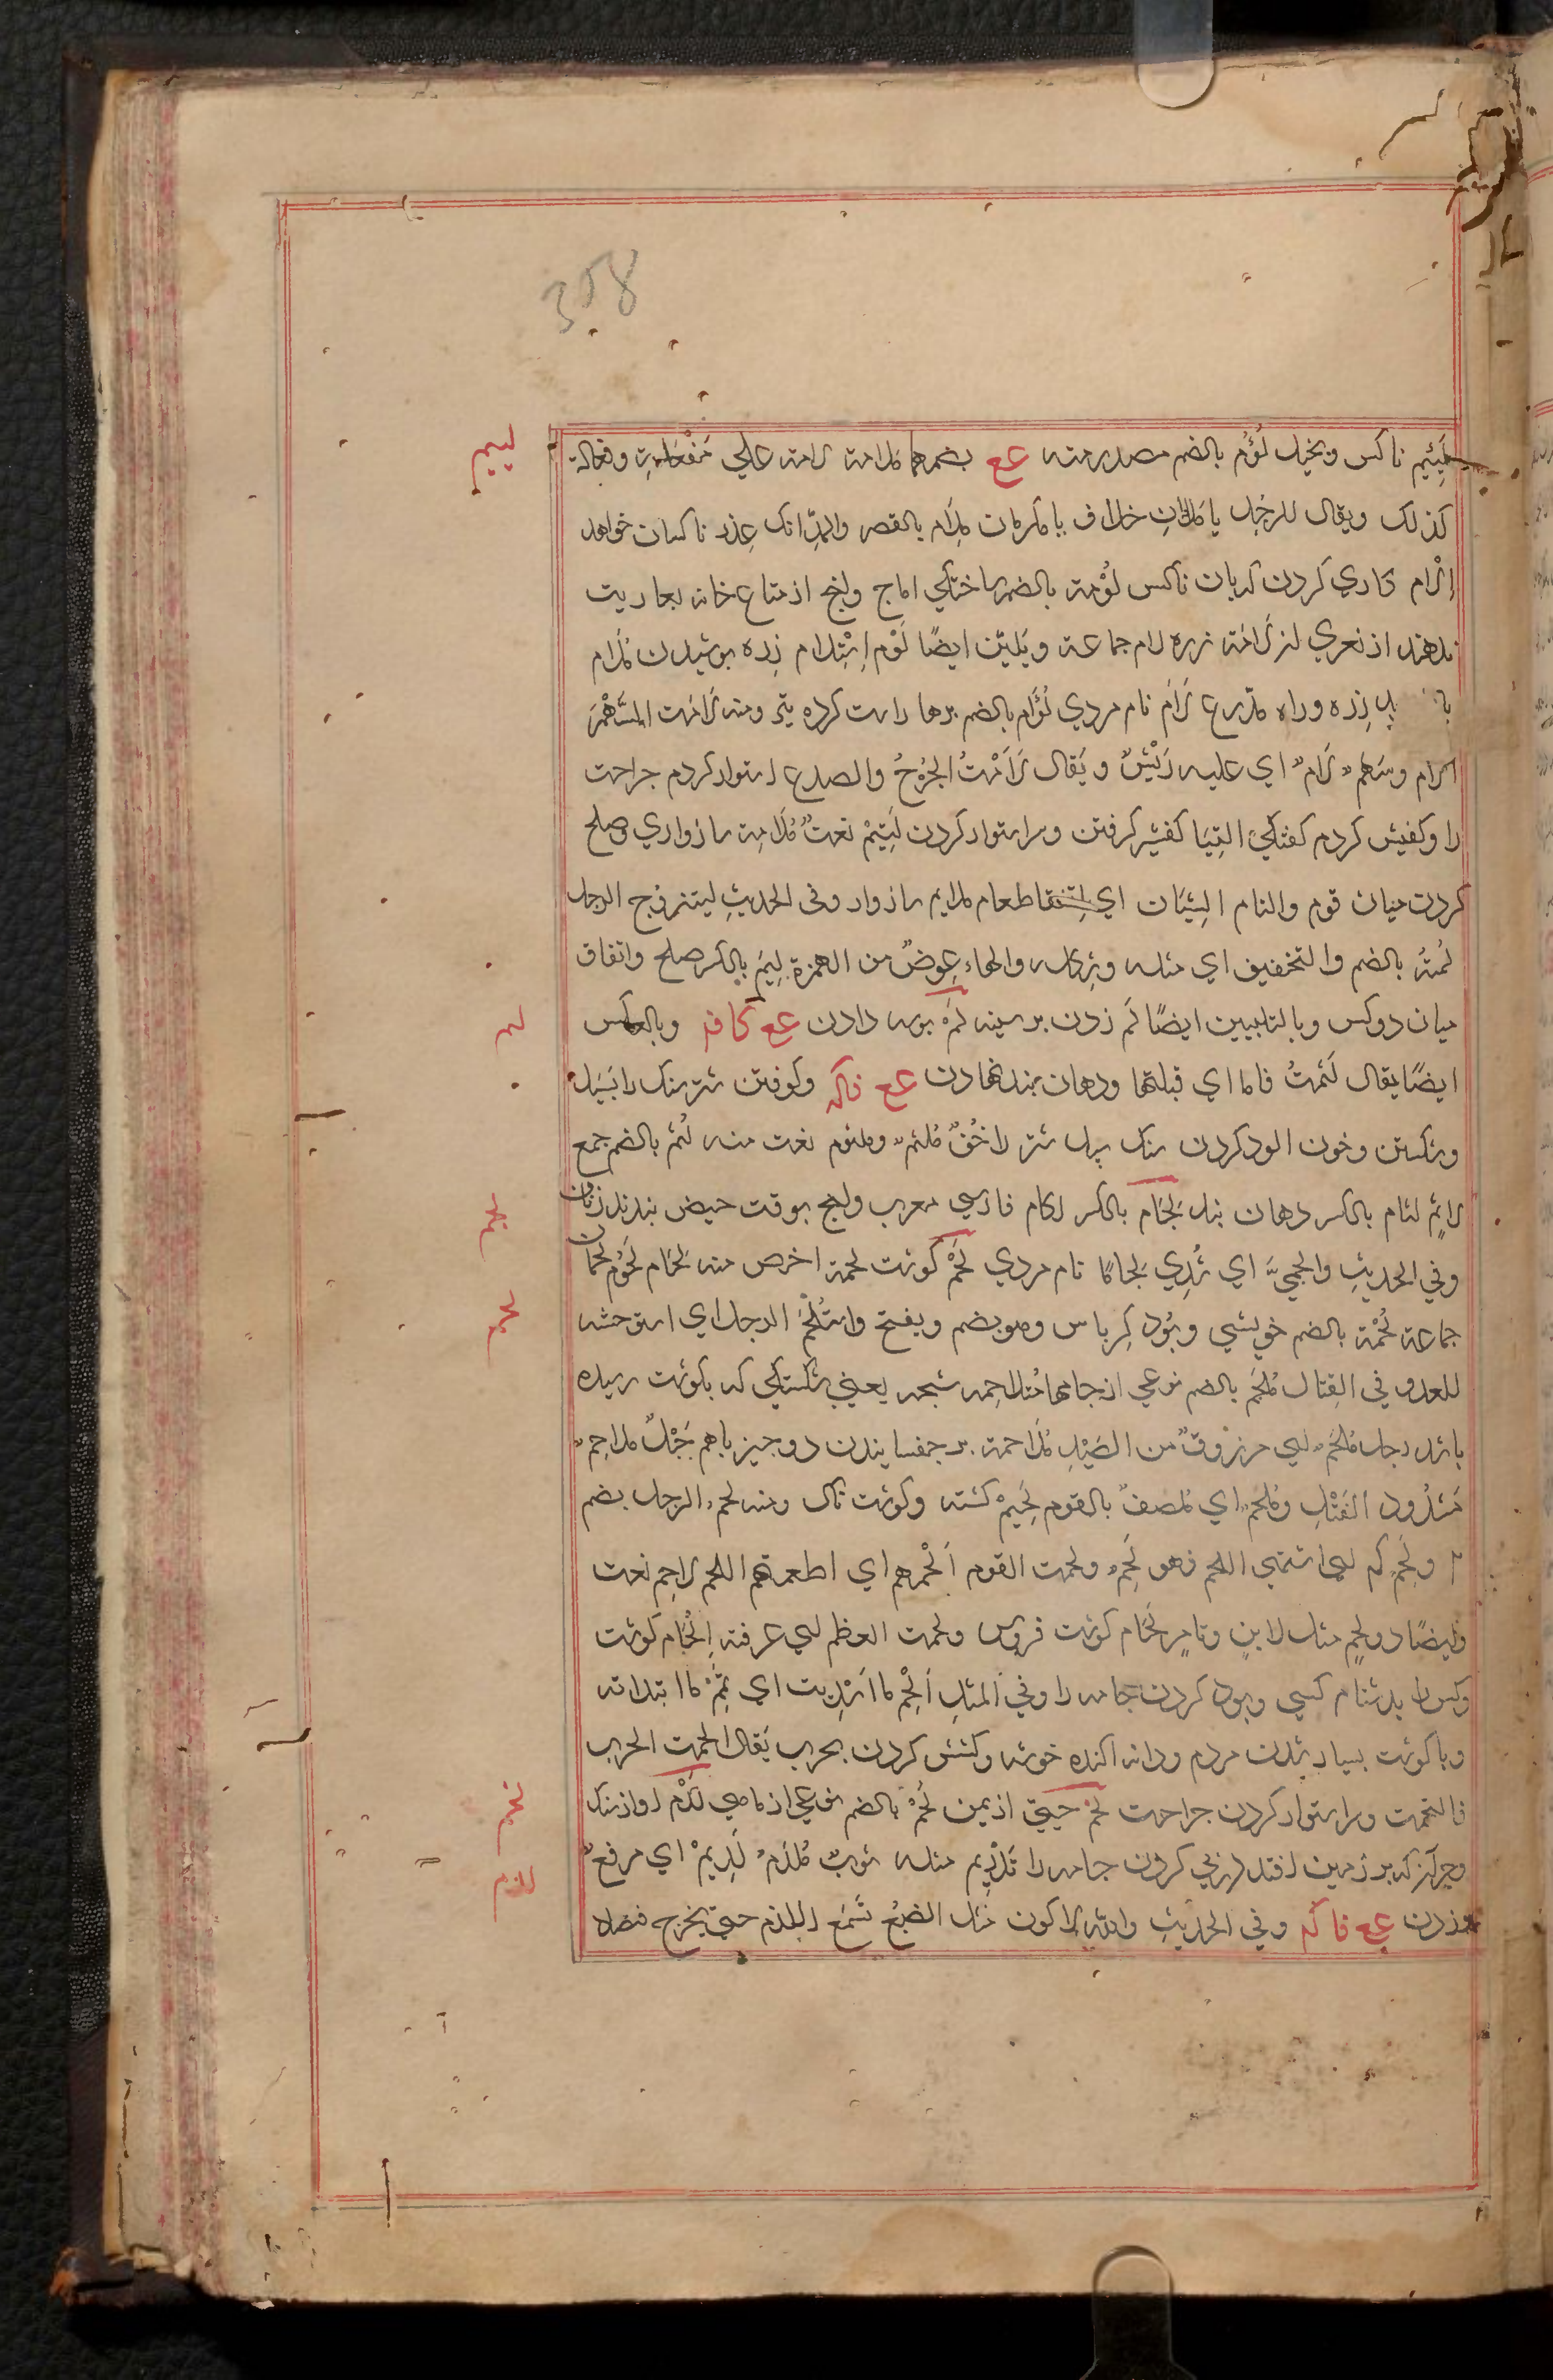 358
لئیم
لئیم ناکس و بخیل لؤم بالضم مصدر منه عع بضمهما ملامة لامة علی مفعلة و فعالة
کذلک ویقال للرجل یا ملأمان خلاف یا مکرمان ملام بالقصر والمد انک عذر ناکسان خواهد
الآم کاری کردن که بان ناکس لؤمة بالضم ساختکی اماج و انچ از متاع خانه بعاریت
ندهند از نعری لئز لأمة زره لام جماعة ویلین ایضا لؤم استلام زره پوشیدن ملام
زره وراه مدرع لأم نام مردی لؤام بالضم برها راست کرده تیر ومنه لأمت السهم
لأم وسهم لأم ای علیه ریش و یقال لأمت الجرح والصدع استوار کردم جراحت
را وکفش کردم کفتکی التیام کفشیر کرفتن وسر استوار کردن لئیم نعت ملامة سازواری وصلح
کردن میان قوم والتام الشیئان ای اتفقا طعام ملایم سازوار وفی الحدیث لیتزوج الرجل
لمته بالضم والتخفیف ای مثله وشکله والهاء عوض من الهمزة لیم بالکسر صلح واتفاق
لثم
میان دوکس وبالتلیین ایضا لثم زدن بر سینه لثم بوسه دادن عع کافه وبالعکس
ایضا یقال لثمت فاها ای قبلتها ودهان بند نهادن عع فاکه وکوفتن شتر سنک را بسبل
وشکستن وخون الود کردن سنک سبل شتر را خف ملثم وملثوم نعت منه لثم بالضم جمع
لجم
لاثم لثام بالکسر دهان بند لجام بالکسر لکام فارسی معرب وانچ بوقت حیض بندند زنان
لحم
وفی الحدیث والجمی ای شدی لجاما نام مردی لحم کوشت لحمة اخص منه لحام لحوم لحمان
جماعة لحمة بالضم خویشی وپود کرباس وهو یضم ویفتح واستلحم الرجل ای استوحشه
للعدو فی القتال ملحم بالضم نوعی از جامها متلاحمه شجه یعنی شکستکی که بکوشت رسیده
باشد رجل ملحم ای مرزوق من الصید ملاحمة بر چفسانیدن دو چیز باهم حبل ملاحم
مشدود الفتل وملحم ای ملصق بالقوم لحیم کشته وکوشت ناک ومنه لحم الرجل بضم
ولحم کم ای اشتهی اللحم فهو لحم ولحمت القوم الحمهم ای اطعمتهم اللحم لاحم نعت
وایضا ذو لحم مثل لابن وتامر لحام کوشت فروش ولحمت العظم ای عرفته الحام کوشت
وکس را بدشنام کسی وپود کردن جامه را وفی المثل الحم ما اسدیت ای تمم ما ابتداته
وبا کوشت بسیار شدن مردم ودانه اکنده خوشه وکشش کردن بحرب یقال الحمت الحرب
لخم
فالتحمت وسر استوار کردن جراحت لخم حیی از یمن لخم بالضم نوعی از ماهی لدم اواز سنک
لدم
وچیز که بر زمین افتد درپی کردن جامه را تلدیم مثله ثوب ملدم لدیم ای مرقع
زدن عع فاکه وفی الحدیث والله لا اکون مثل الضبع تسمع اللدم حتی یخرج فتصاد